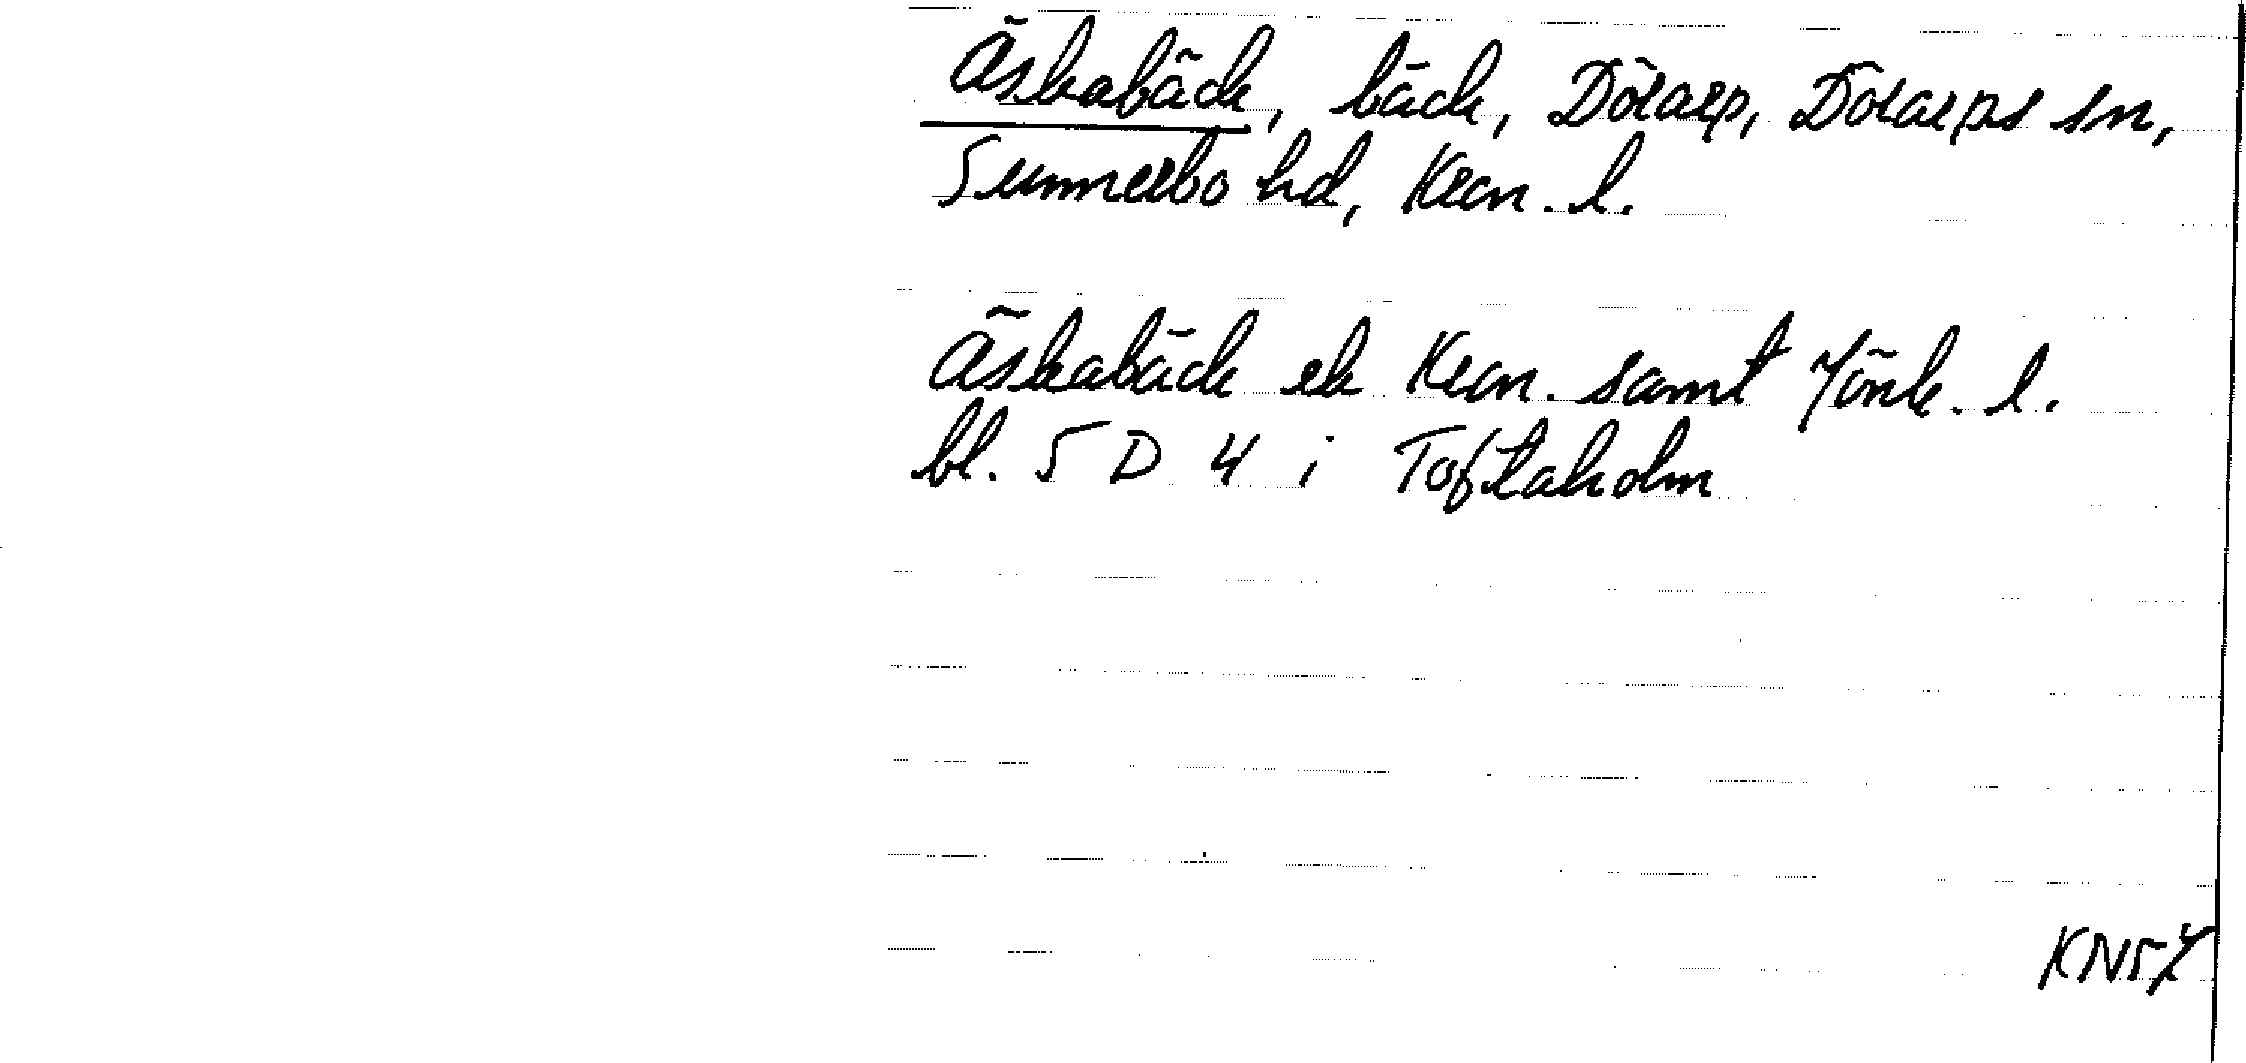 Äskabäck, bäck, Dörarp, Dörarps sn,
Sunnerbo hd, Kron. l.
Äskabäck ek Kron. samt Jönk. l.
bl. 5 D 4 i Toftaholm
KN57